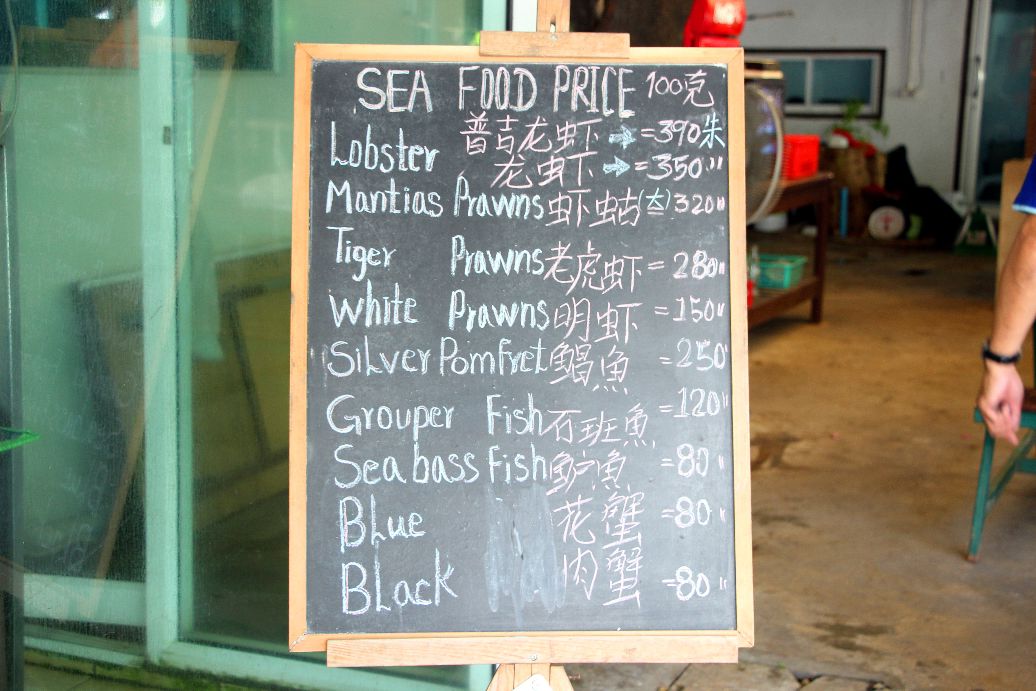 SEA FOOD PRICE 100克
Lobster 普吉龙虾 → =390朱
龙虾 → =350 "
Mantias Prawns 虾蛄(大) 320 "
Tiger Prawns 老虎虾 = 280 "
White Prawns 明虾 =150 "
Silver Pomfret 鲳魚 =250 "
Grouper Fish 石班魚 =120 "
Seabass Fish 鲈魚 =80 "
Blue 花蟹 =80 "
Black 肉蟹 =80 "